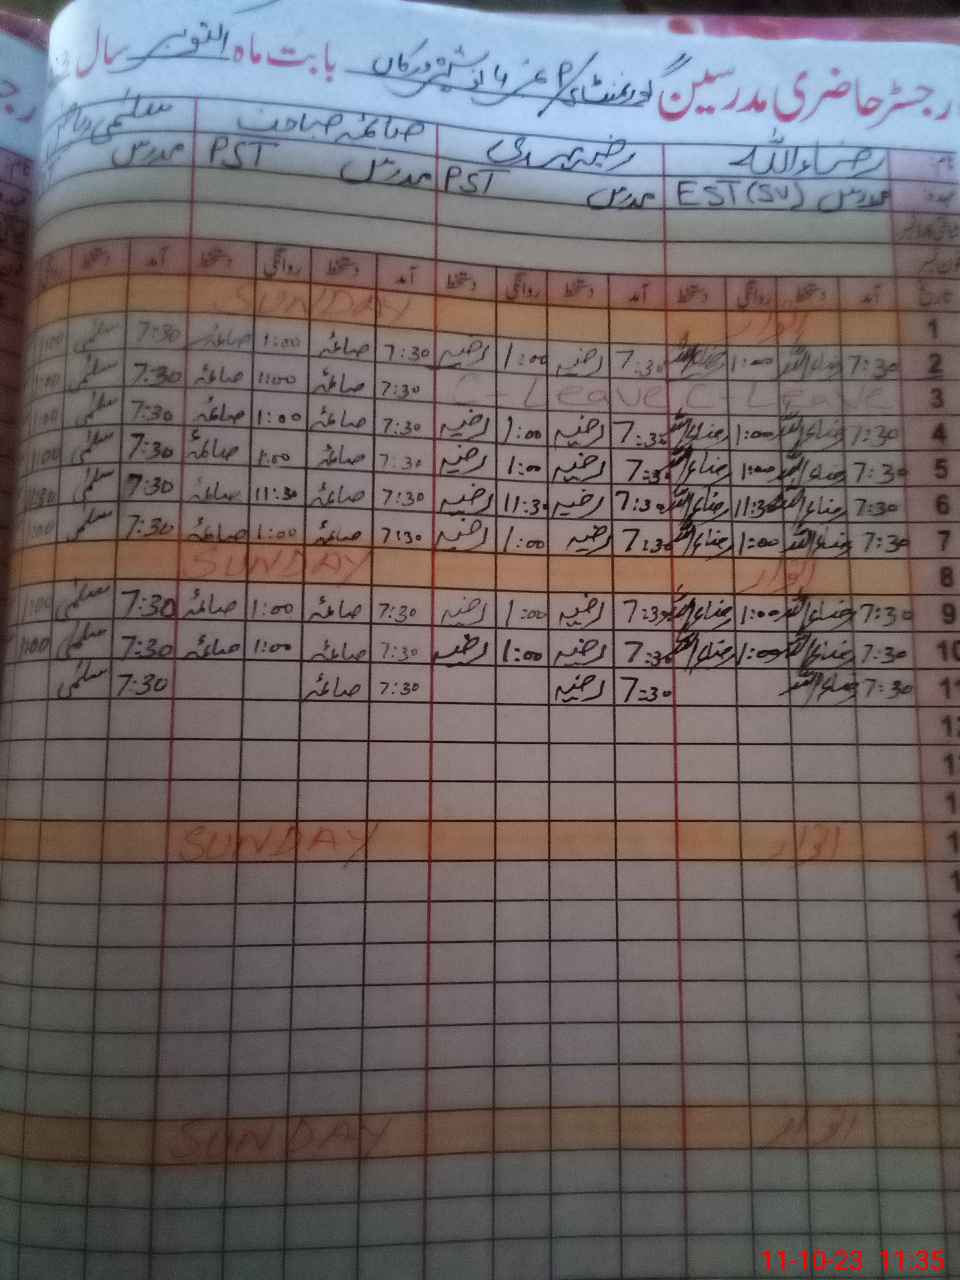 رجسٹر حاضری مدرسین گورنمنٹ بابت ماہ اکتوبر سال
رضاء اللہ صائمہ سلمیٰ
مدرس EST (SV) مدرس PST مدرس PST مدرس
تاریخ آمد دستخط روانگی دستخط آمد دستخط روانگی دستخط آمد دستخط روانگی دستخط آمد دستخط
1 اتوار SUNDAY
2 7:30 رضاء اللہ 1:00 رضاء اللہ 7:30 رضیہ 1:00 رضیہ 7:30 صائمہ 1:00 صائمہ 7:30 سلمیٰ 1:00
3 C-Leave C-Leave 7:30 صائمہ 1:00 صائمہ 7:30 سلمیٰ 1:00
4 7:30 رضاء اللہ 1:00 رضاء اللہ 7:30 رضیہ 1:00 رضیہ 7:30 صائمہ 1:00 صائمہ 7:30 سلمیٰ 1:00
5 7:30 رضاء اللہ 1:00 رضاء اللہ 7:30 رضیہ 1:00 رضیہ 7:30 صائمہ 1:00 صائمہ 7:30 سلمیٰ 1:00
6 7:30 رضاء اللہ 11:30 رضاء اللہ 7:30 رضیہ 11:30 رضیہ 7:30 صائمہ 11:30 صائمہ 7:30 سلمیٰ 11:30
7 7:30 رضاء اللہ 1:00 رضاء اللہ 7:30 رضیہ 1:00 رضیہ 7:30 صائمہ 1:00 صائمہ 7:30 سلمیٰ 1:00
8 اتوار SUNDAY
9 7:30 رضاء اللہ 1:00 رضاء اللہ 7:30 رضیہ 1:00 رضیہ 7:30 صائمہ 1:00 صائمہ 7:30 سلمیٰ 1:00
10 7:30 رضاء اللہ 1:00 رضاء اللہ 7:30 رضیہ 1:00 رضیہ 7:30 صائمہ 1:00 صائمہ 7:30 سلمیٰ 1:00
11 7:30 رضاء اللہ 7:30 رضیہ 7:30 صائمہ 7:30 سلمیٰ
اتوار SUNDAY
اتوار SUNDAY
11-10-23 11:35